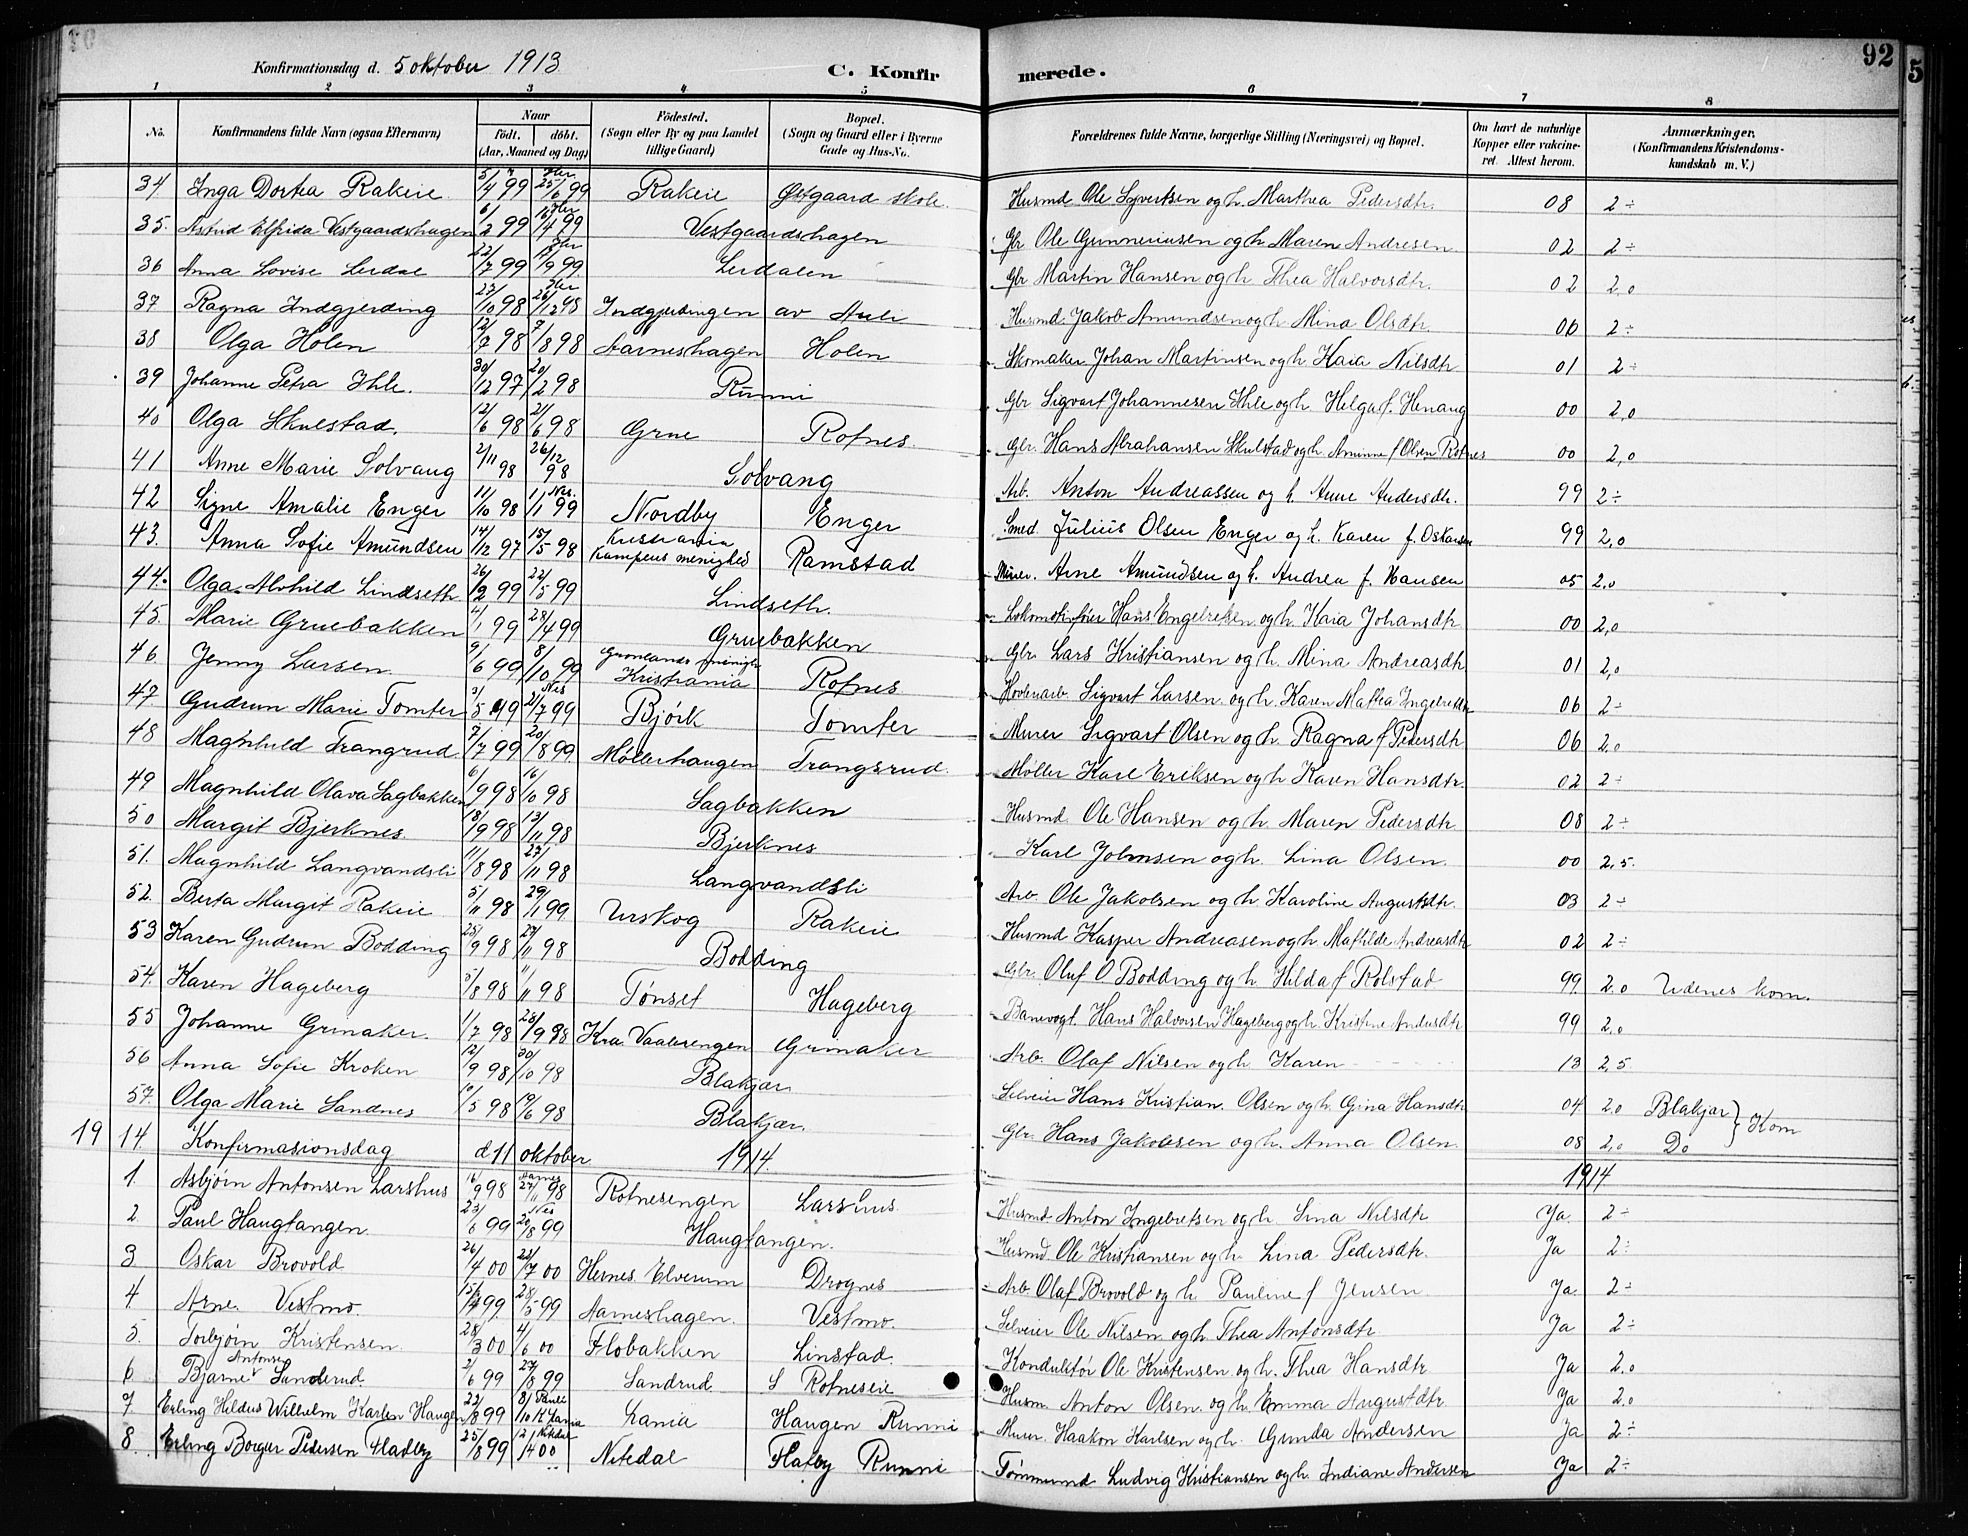 Konfirmationsdag d. 5 oktober 1913
C. Konfirmerede.
92
1 2 3 4 5 6 7 8
No. Konfirmandens fulde Navn (ogsaa Efternavn) Naar født. døbt. (Aar, Maaned og Dag) Fødested. (Sogn eller By og paa Landet tillige Gaard) Bopæl. (Sogn og Gaard eller i Byerne Gade og Hus-No. Forældrenes fulde Navne, borgerlige Stilling (Næringsvei) og Bopæl. Om havt de naturlige Kopper eller vaccineret. Attest herom. Anmærkninger. (Konfirmandens Kristendomskundskab m. V.)
34 Inga Dortea Rakeie 5/4 99 25/6 99 Rakeie Østgaard skole. Husmd Ole Syvertsen og h. Marthea Pedersdtr. 08 2÷
35. Astrid Elfrida Vestgaardshagen 6/2 99 16/4 99 Vestgaardshagen Gbr Ole Gunneriusen og h. Maren Andresen 02 2÷
36 Anna Lovise Lerdal 22/7 99 /9 99 Lerdalen Gbr Martin Hansen og h. Thea Halvorsdtr. 02 2,0
37 Ragna Indgjerding 23/10 98 26/12 98 Indgjerdingen av Auli Husmd. Jakob Amundsen og h. Mina Olsdtr. 06 2÷
38 Olga Holen 12/7 98 7/8 98 Aarneshagen Holen Skomaker Johan Martinsen og h. Kaia Nilsdtr 01 2÷
39 Johanne Petra Ihle. 30/12 97 20/2 98 Runni Gbr Sigvart Johannesen Ihle og h. Helga f. Henaug 00 2,0
40 Olga Skulstad. 12/6 98 21/6 98 Grue Rofnes. Gbr. Hans Abrahansen Skulstad og h. Aminne f Olsen Rofnes 00 2,0
41 Anne Marie Solvang 2/11 98 26/12 98 Solvang Arb. Anton Andreassen og h. Anne Andersdtr. 99 2÷
42 Signe Amalie Enger 11/10 98 1/1 99 Nes. Nordby Enger Smed Julius Olsen Enger og h. Karen f. Oskarsen 99 2,0
43. Anna Sofie Amundsen 14/12 97 15/5 98 Kristiania Kampens menighed Ramstad Murer. Arne Amundsen og h. Andrea f. Hansen 05 2.0
44. Olga Alvhild Lindseth 26/2 99 22/5 99 Lindseth. Lokomotivfører Hans Engebretsen og h. Kaia Johansdtr 00 2,0
45. Marie Gruebakken 11/1 99 28/4 99 Gruebakken Gbr Lars Kristiansen og h. Mina Andreasdtr 01 2,0
46. Jenny Larsen 9/6 99 8/10 99 Grønlands menigh Kristiania Rofnes Sigvart Larsen og h. Karen Mathea Ingebretsdtr 06 2÷
47 Gudrun Marie Tomter 3/5 99 2/7 99 Nes Bjørk Tomter Murer Sigvart Olsen og h. Ragna f Pedersdtr 06 2.0
48 Magnhild Trangrud 7/7 99 20/8 99 Møllerhaugen Trangsrud. Møller Karl Eriksen og h. Karen Hansdtr. 02 2÷
49 Magnhild Olava Sagbakken 6/9 98 16/10 98 Sagbakken Husmd. Ole Hansen og h. Maren Pedersdtr 08 2÷
50 Margit Bjerknes. 18/9 98 13/11 98 Bjerknes Karl Johnsen og h. Lina Olsen 00 2,5.
51. Magnhild Langvandsli 11/8 98 27/11 98 Langvandsli Arb Ole Jakobsen og h. Karoline Augustsdtr. 03 2÷
52. Berta Margit Rakeie 5/11 98 29/1 99 Urskog Rakeie Husmd Kasper Andreasen og h. Mathilde Andreasdtr 02 2÷
53 Karen Gudrun Bodding 25/9 98 27/11 98 Bodding Gbr. Oluf O Bodding og h. Hilda f Rolstad 99. 2.0 Udenes kom.
54. Karen Hageberg 5/8 98 11/11 98 Tønset Hageberg Banevogt. Hans Halvorsen Hageberg og h. Kristine Andersdtr 99 2.0
55 Johanne Grinaker. 11/7 98 28/9 98 Kra. Vaalerengen Grinaker Arb. Olaf Nilsen og h. Karen 13 2,5
56 Anna Sofie Kroken 12/9 98 30/10 98 Blakjær Selveier Hans Kristian. Olsen og h. Gina Hansdtr 04 2.0 Blakjær } Kom
57. Olga Marie Sandnes 10/5 98 19/6 98 Blakjær. Gbr. Hans Jakobsen og h. Anna Olsen. 08 2,0 Do
1914. Konfirmasionsdag d 11 oktober 1914 1914
1. Asbjørn Antonsen Larshus 16/9 98 27/11 98 Aarnes Rofnesengen Larshus. Husmd Anton Ingebretsen og h. Lina Nilsdtr Ja 2÷
2. Paul Haugtangen 23/6 99 20/8 99 Nes Haugtangen. Husmd. Ole Kristiansen og h. Lina Pedersdtr. Ja 2÷
3 Oskar Brovold 26/4 00 22/7 00 Hernes Elverum Drognes Arb Olaf Brovold og h. Pauline f Jensen. Ja. 2÷
4. Arne Vestmo. 15/4 99 28/5 99 Aarneshagen. Vestmo. Selveier Ole Nilsen og h. Thea Antonsdtr Ja 2÷
5. Torbjørn Kristensen 28/3 00 4/6 00 Flobakken Linstad. Konduktør Ole Kristensen og h. Thea Hansdtr Ja 2.0
6 Bjarne Antonsen Sanderud. 2/6 99 27/8 99 Sandrud S Rofneseie Husm. Anton Olsen og h. Emma Augustdtr. Ja 2,0
7 Erling Hildus Wilhelm Karlsen Haugen 22/8 99 8/10 Kr.ania Haugen Runni Murer. Haakon Karlsen og h. Gunda Andersen Ja 2÷
8 Erling Borger Pedersen Flatby 25/8 99 12/4 00 Nitedal Nitedal Flatby Runni Tømmermd Ludvig Kristiansen og h. Indiane Andersen Ja 2÷